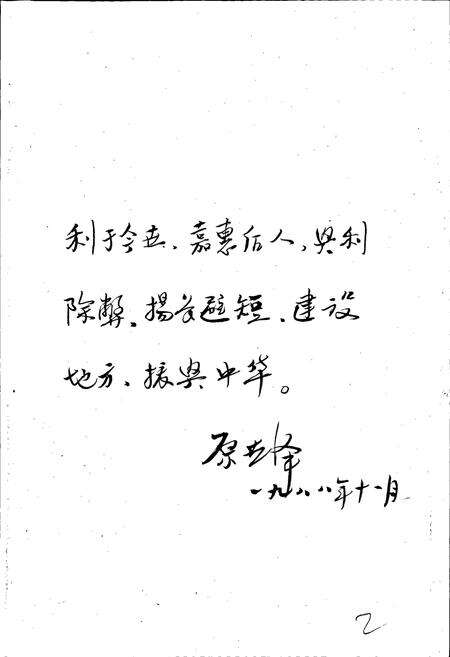 利于今世、嘉惠后人，興利
除弊、揚长避短、建设
地方、振興中华。
原
一九八八年十一月
2